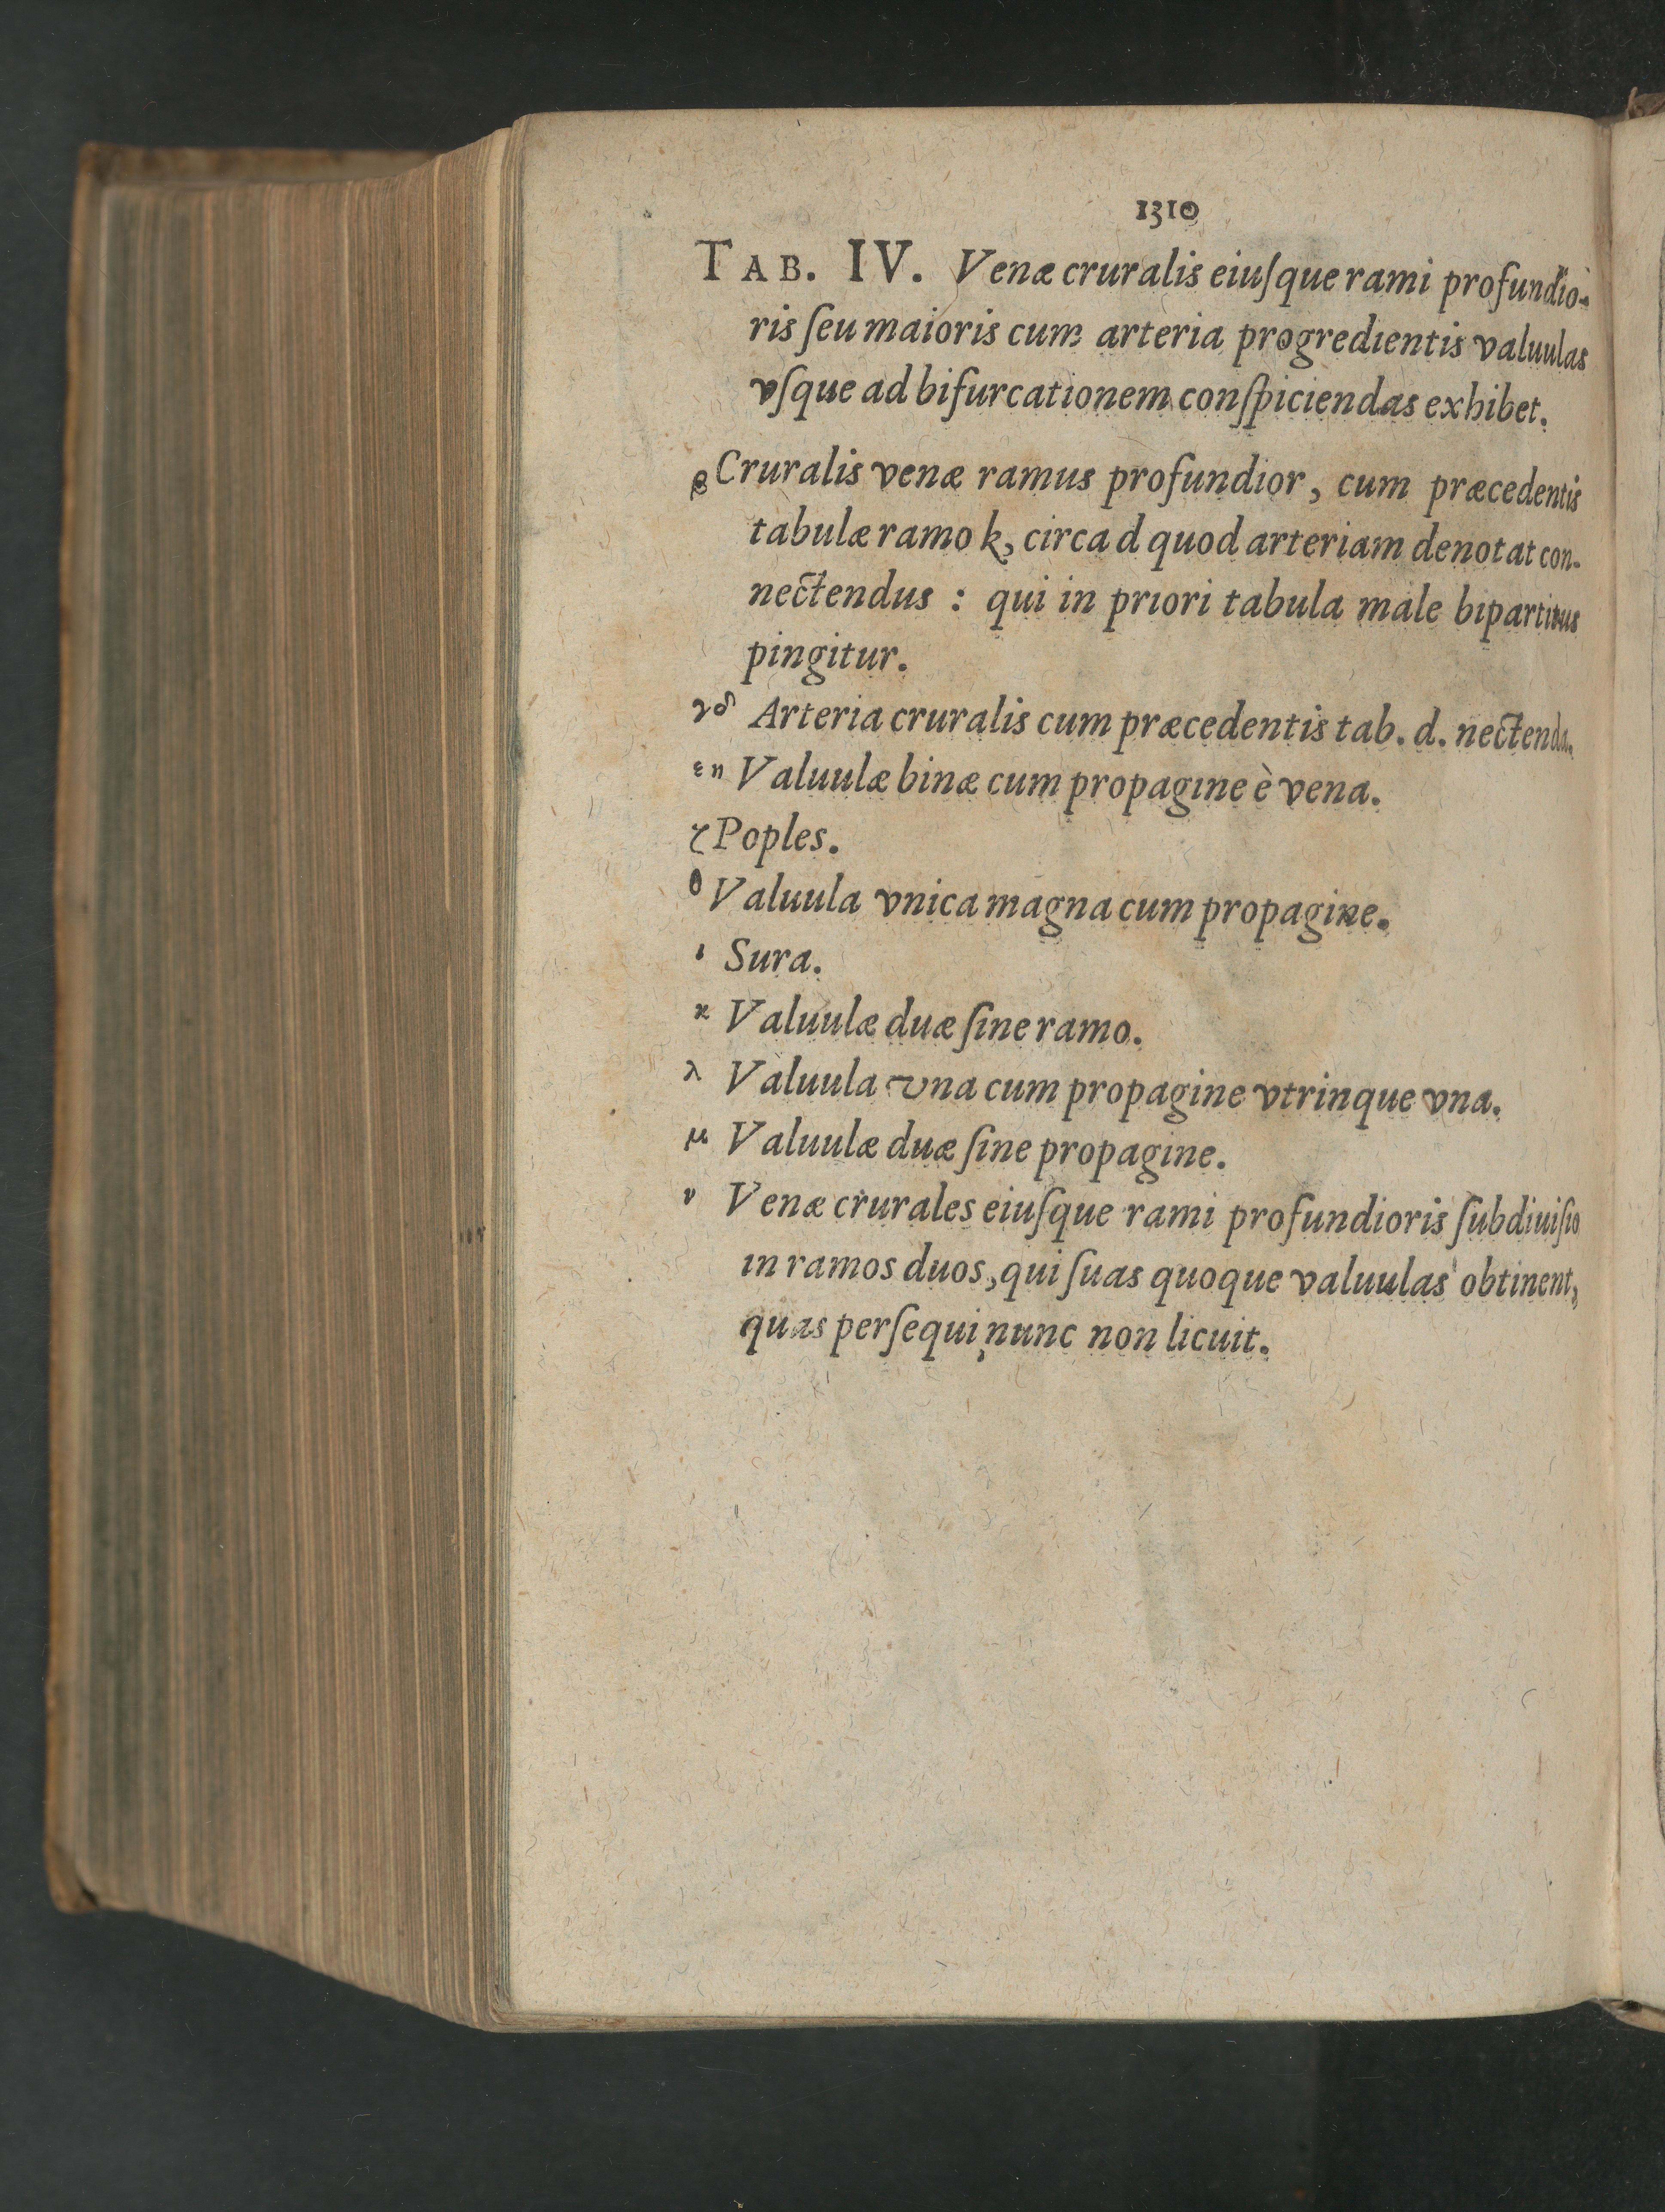 1310
TAB. IV. Venæ cruralis eiuſque rami profundio-
ris ſeu maioris cum arteria progredientis valuulas
vſque ad bifurcationem conſpiciendas exhibet.
β Cruralis venæ ramus profundior, cum præcedentis
tabulæ ramo k, circa d quod arteriam denotat con-
nectendus : qui in priori tabula male bipartitus
pingitur.
γδ Arteria cruralis cum præcedentis tab. d. nectenda.
εη Valuulæ binæ cum propagine è vena.
ζ Poples.
θ Valuula vnica magna cum propagine.
ι Sura.
κ Valuulæ duæ ſine ramo.
λ Valuula vna cum propagine vtrinque vna.
μ Valuulæ duæ ſine propagine.
ν Venæ crurales eiuſque rami profundioris ſubdiuiſio
in ramos duos, qui ſuas quoque valuulas obtinent,
quas perſequi nunc non licuit.